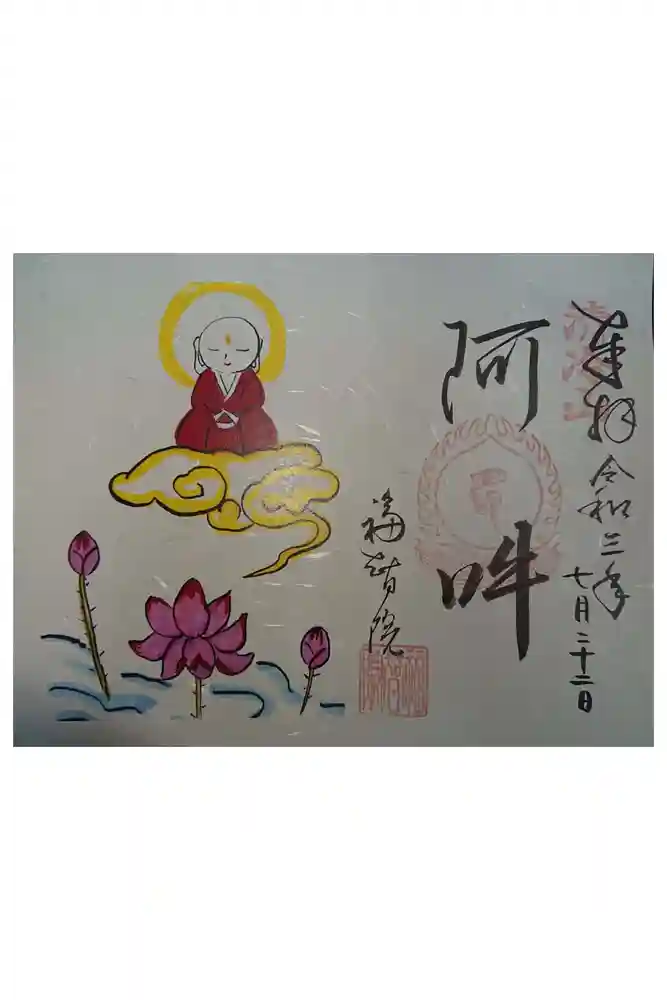 奉拝
令和三年
七月二十二日
阿
吽
福智院